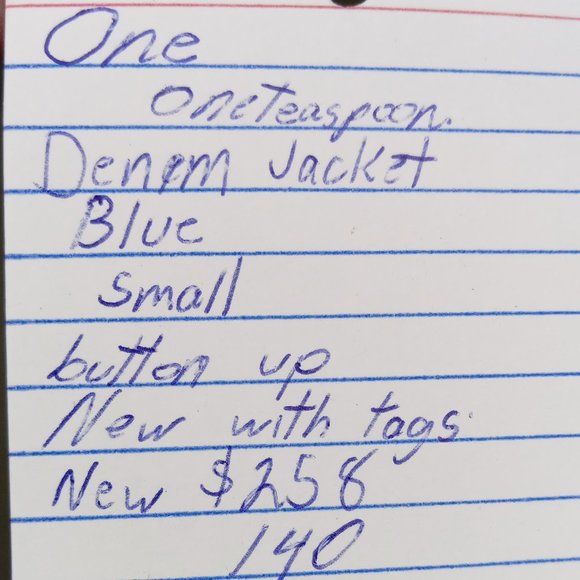 One
oneteaspoon.
Denim Jacket
Blue
Small
button up
New with tags
New $258
140